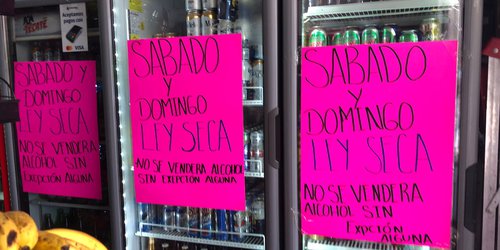 Aceptamos
pagos con
TECATE
SABADO Y
DOMINGO
LEY SECA
NO SE VENDERA
ALCOHOL SIN
EXEPCIÓN ALGUNA
SABADO
Y
DOMINGO
LEY SECA
NO SE VENDERA ALCOHOL
SIN EXEPCIÓN ALGUNA
SABADO
Y
DOMINGO
LEY SECA
NO SE VENDERA
ALCOHOL SIN
EXEPCIÓN
ALGUNA